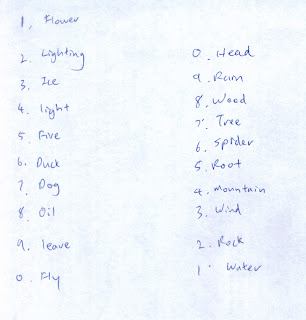 1. Flower
2. Lighting
3. Ice
4. light
5. Five
6. Duck
7. Dog
8. Oil
9. leave
0. Fly
0. Head
9. Rain
8. Wood
7. Tree
6. Spider
5. Root
4. mountain
3. Wind
2. Rock
1. Water